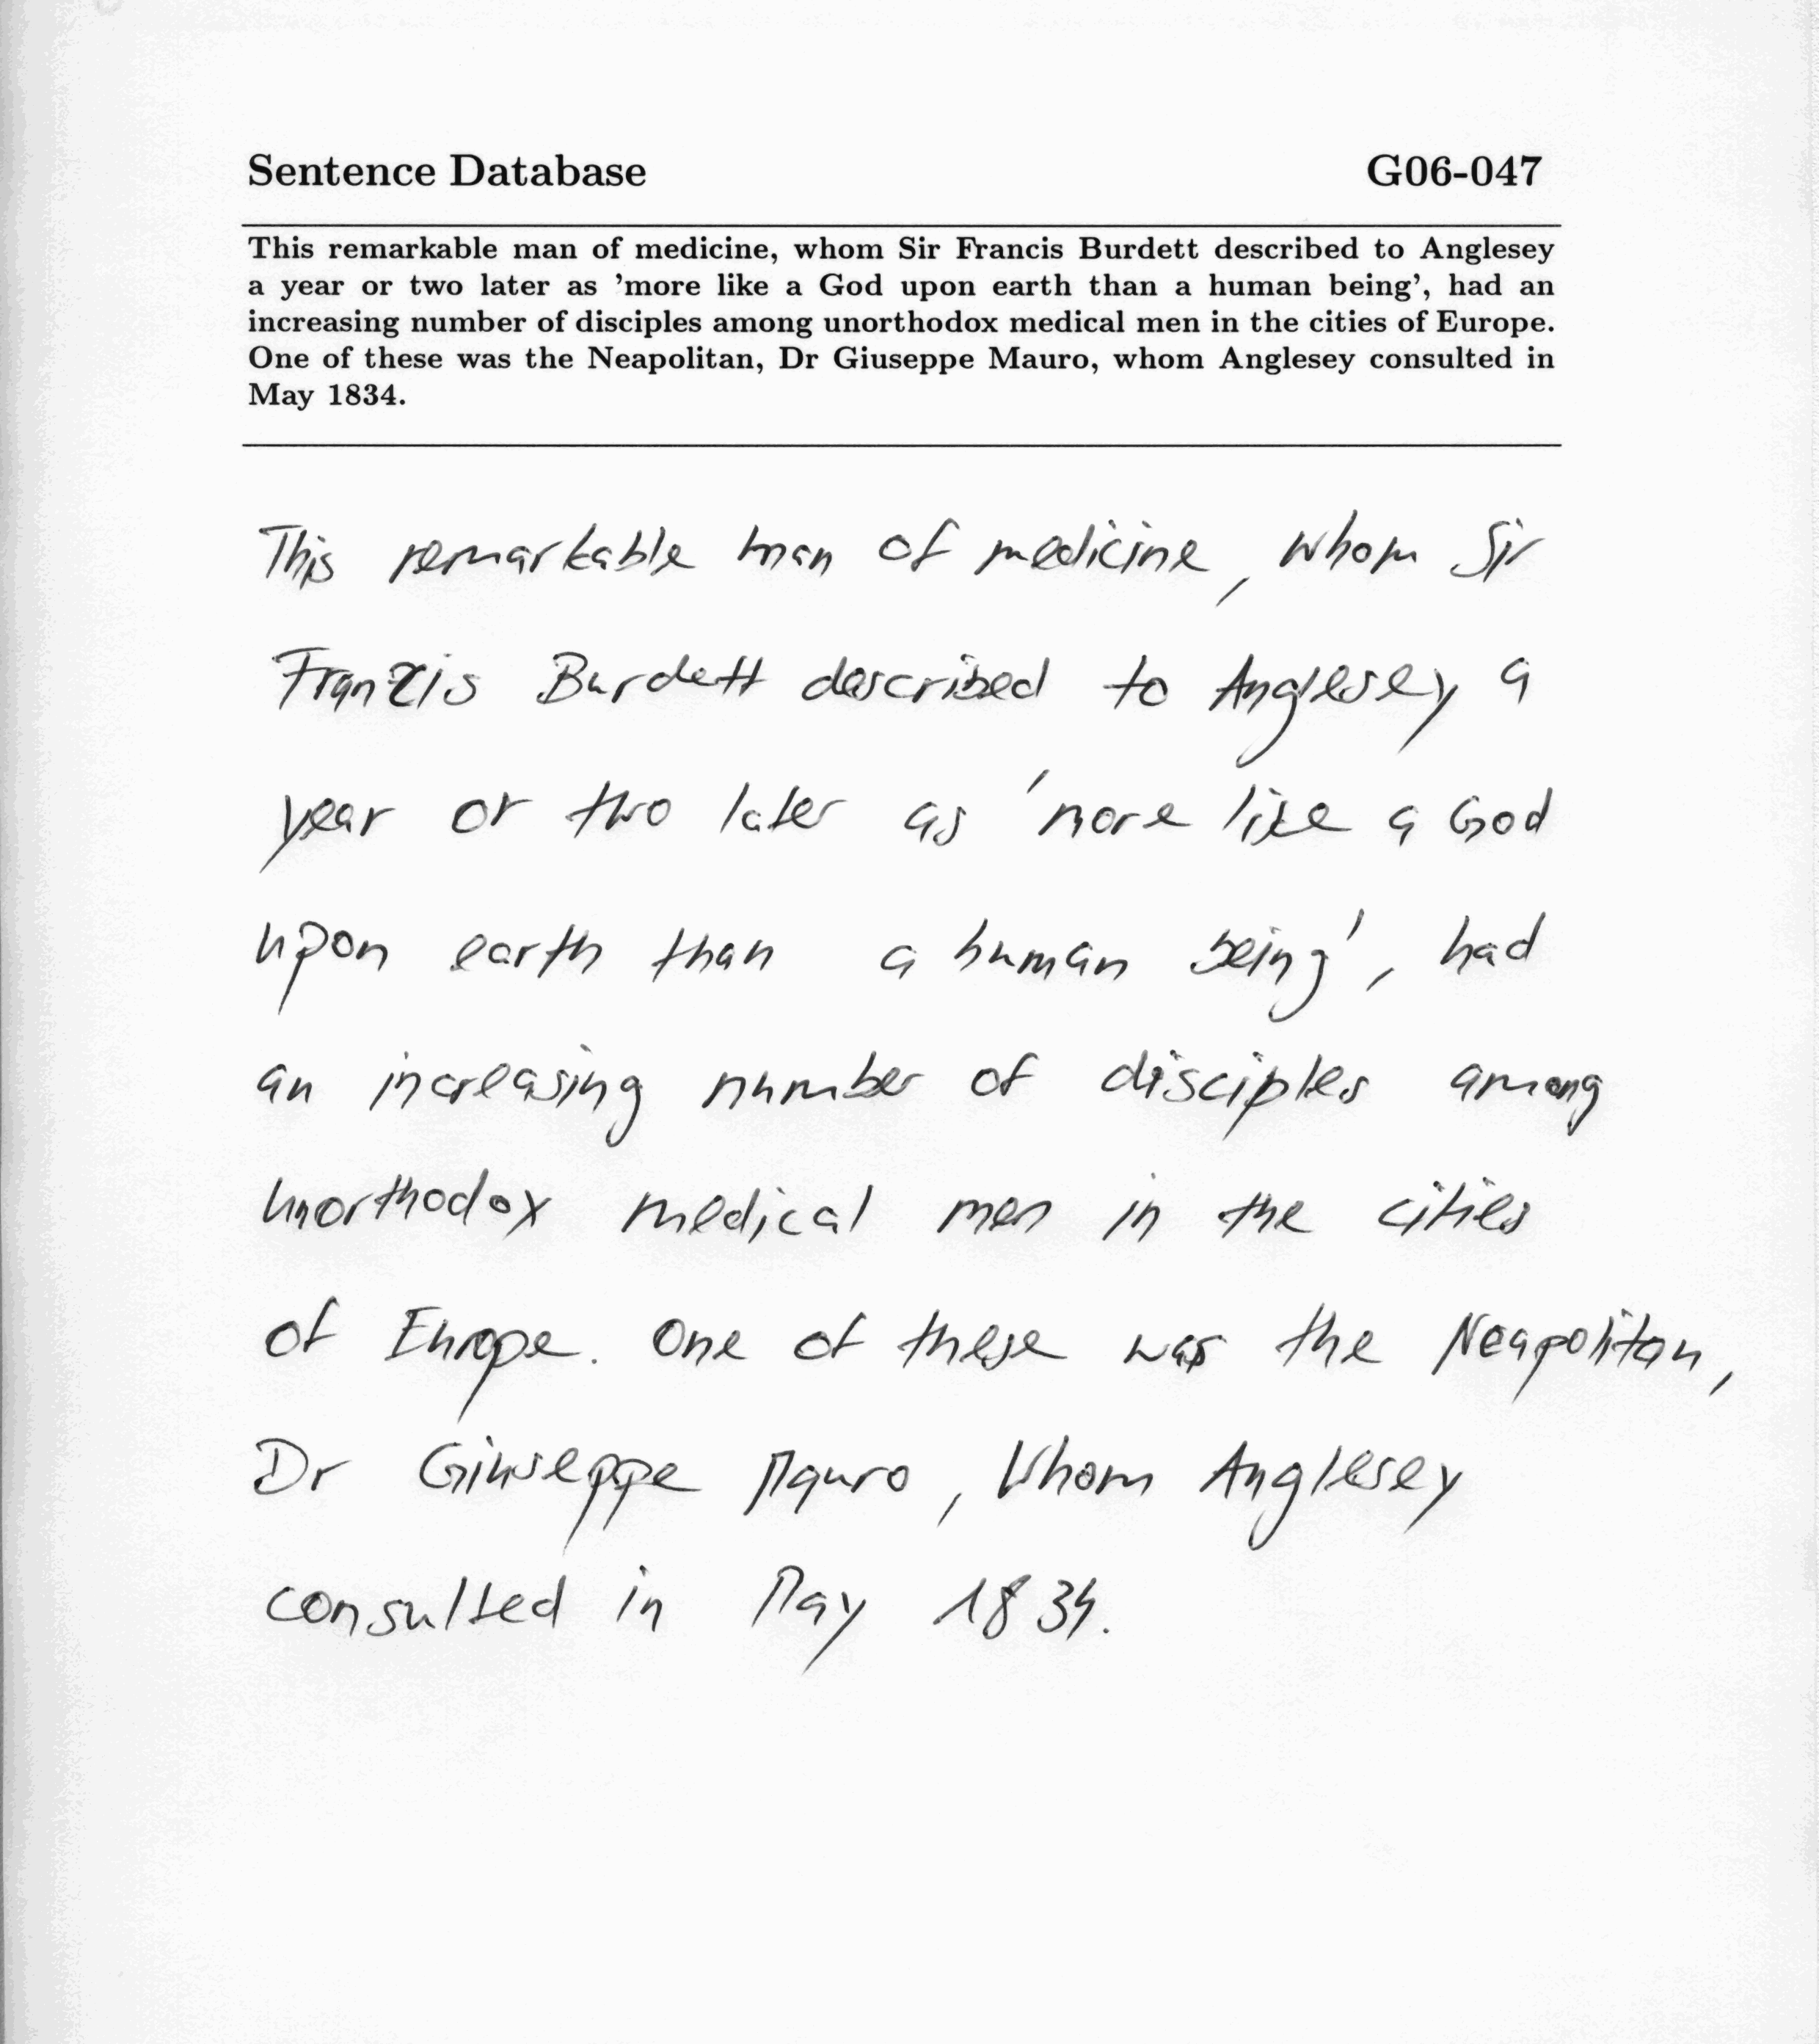 Sentence Database G06-047
This remarkable man of medicine, whom Sir Francis Burdett described to Anglesey
a year or two later as 'more like a God upon earth than a human being', had an
increasing number of disciples among unorthodox medical men in the cities of Europe.
One of these was the Neapolitan, Dr Giuseppe Mauro, whom Anglesey consulted in
May 1834.
This remarkable man of medicine, whom Sir
Franzis Burdett described to Anglesey a
year or two later as 'more like a God
upon earth than a human being', had
an increasing number of disciples among
unorthodox medical men in the cities
of Europe. One of these was the Neapolitan,
Dr Giuseppe Mauro, whom Anglesey
consulted in May 1834.